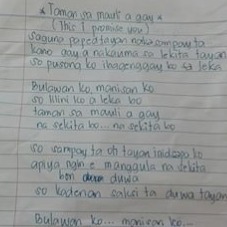 * Taman sa mauli a gay *
(This I promise you)
Saguna papedtayan ko sampay ta
kano gay a nakauma sa lekita tayan
so pusong ko ibagenggay ko sa leka
Bulawan ko, manisan ko
so lilini ko a leka bo
taman sa mauli a gay
na sekita bo... na sekita bo
so sampay ta oh tayan
apiya ngin e manggula na sekita
bon duwa
so kadenan saksi ta duwa tayan
Bulawan ko... manisan ko...